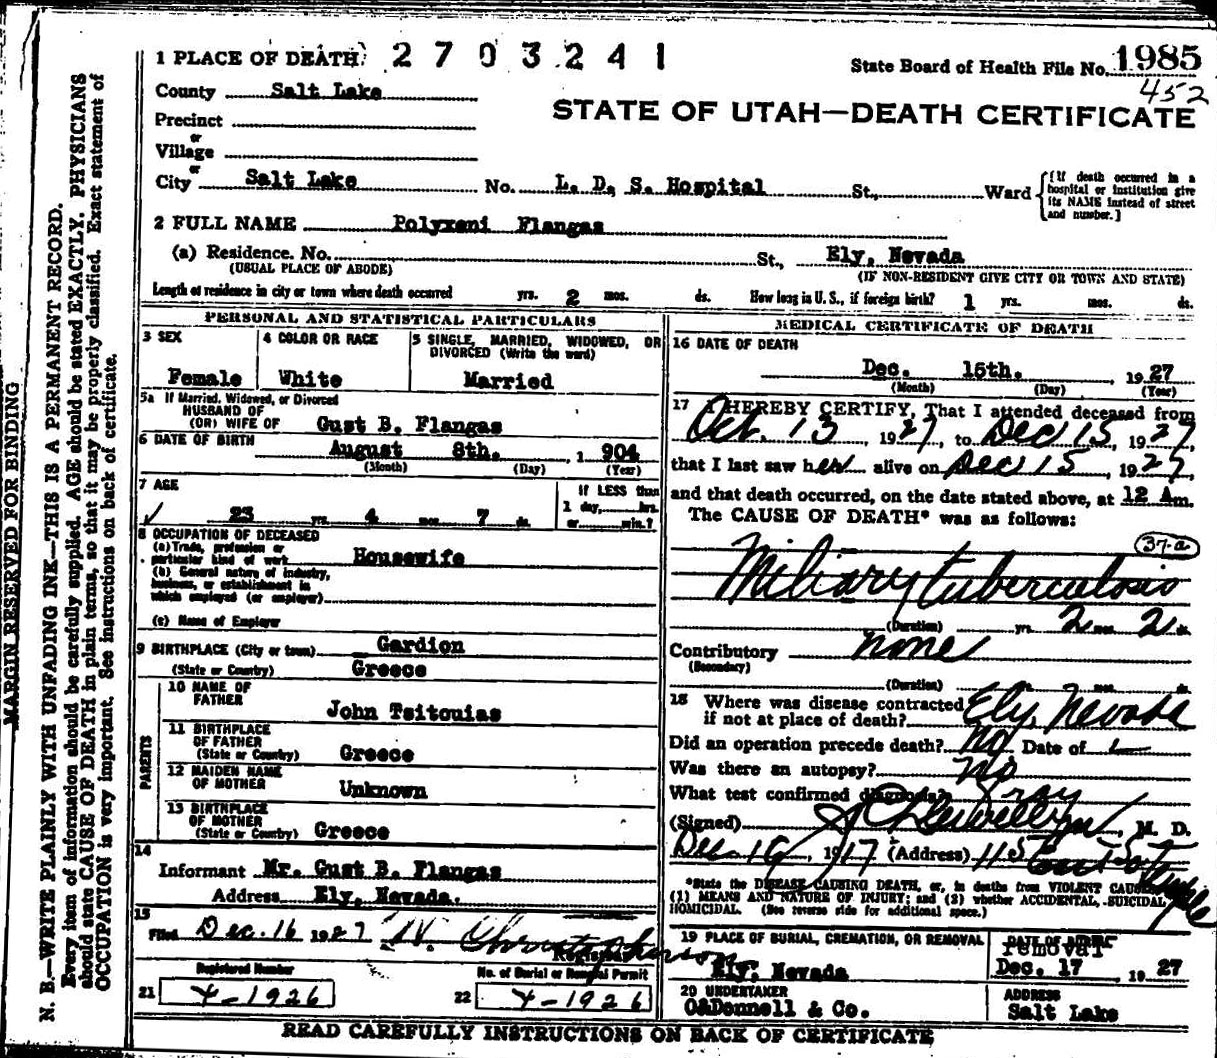 1 PLACE OF DEATH 2703241
State Board of Health File No. 1985
452
County Salt Lake
STATE OF UTAH—DEATH CERTIFICATE
Precinct
or
Village
or
City Salt Lake No. L. D. S. Hospital St., Ward
[If death occurred in a hospital or institution give its NAME instead of street and number.]
2 FULL NAME Polyxeni Flangas
(a) Residence. No. St., Ely, Nevada
(USUAL PLACE OF ABODE) (IF NON-RESIDENT GIVE CITY OR TOWN AND STATE)
Length of residence in city or town where death occurred yrs. 2 mos. ds. How long in U. S., if foreign birth? 1 yrs. mos. ds.
PERSONAL AND STATISTICAL PARTICULARS
3 SEX
Female
4 COLOR OR RACE
White
5 SINGLE, MARRIED, WIDOWED, OR DIVORCED (Write the word)
Married
5a If Married, Widowed, or Divorced
HUSBAND OF
(OR) WIFE OF Gust B. Flangas
6 DATE OF BIRTH August 8th. , 1 904
(Month) (Day) (Year)
7 AGE
23 yrs. 4 mos. 7 ds.
If LESS than
1 day, hrs.
or min.?
8 OCCUPATION OF DECEASED
(a) Trade, profession or
particular kind of work Housewife
(b) General nature of industry,
business, or establishment in
which employed (or employer)
(c) Name of Employer
9 BIRTHPLACE (City or town) Gardion
(State or Country) Greece
PARENTS
10 NAME OF
FATHER John Tsitouias
11 BIRTHPLACE
OF FATHER
(State or Country) Greece
12 MAIDEN NAME
OF MOTHER Unknown
13 BIRTHPLACE
OF MOTHER
(State or Country) Greece
14
Informant Mr. Gust B. Flangas
Address Ely, Nevada.
15
Filed Dec. 16 1927
Registrar
Registered Number
21 X-1926
No. of Burial or Removal Permit
22 X-1926
MEDICAL CERTIFICATE OF DEATH
16 DATE OF DEATH
Dec. 15th. , 1927
(Month) (Day) (Year)
17 I HEREBY CERTIFY, That I attended deceased from
Oct. 13 , 1927, to Dec 15 , 1927,
that I last saw her alive on Dec 15 , 1927
and that death occurred, on the date stated above, at 12 Am.
The CAUSE OF DEATH* was as follows:
37-a
Miliary tuberculosis
(Duration) yrs. 2 mos. 2 ds.
Contributory none
(Secondary)
(Duration) yrs. mos. ds.
18 Where was disease contracted
if not at place of death? Ely, Nevada
Did an operation precede death? No Date of
Was there an autopsy? No
What test confirmed diagnosis? Xray
(Signed) Llewellyn , M. D.
Dec. 16 , 1917 (Address) 115 East So Temple
*State the DISEASE CAUSING DEATH, or, in deaths from VIOLENT CAUSES,
(1) MEANS AND NATURE OF INJURY; and (2) whether ACCIDENTAL, SUICIDAL
HOMICIDAL. (See reverse side for additional space.)
19 PLACE OF BURIAL, CREMATION, OR REMOVAL
Ely, Nevada
DATE OF BURIAL
removal
Dec. 17 , 1927
20 UNDERTAKER
O&Donnell & Co.
ADDRESS
Salt Lake
READ CAREFULLY INSTRUCTIONS ON BACK OF CERTIFICATE
MARGIN RESERVED FOR BINDING
N. B.—WRITE PLAINLY WITH UNFADING INK—THIS IS A PERMANENT RECORD.
Every item of information should be carefully supplied. AGE should be stated EXACTLY. PHYSICIANS
should state CAUSE OF DEATH in plain terms, so that it may be properly classified. Exact statement of
OCCUPATION is very important. See instructions on back of certificate.